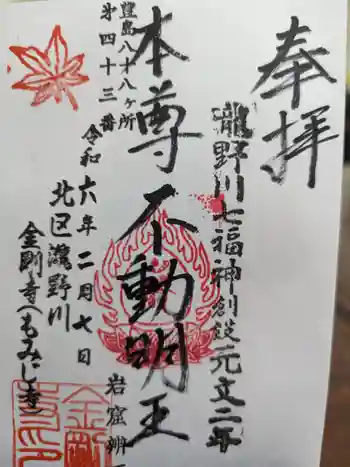 奉拝
瀧野川七福神創設元文二年
本尊不動明王
豊島八十八ヶ所
第四十三番
令和六年二月七日
岩窟辨
北区瀧野川
金剛寺（もみじ寺）